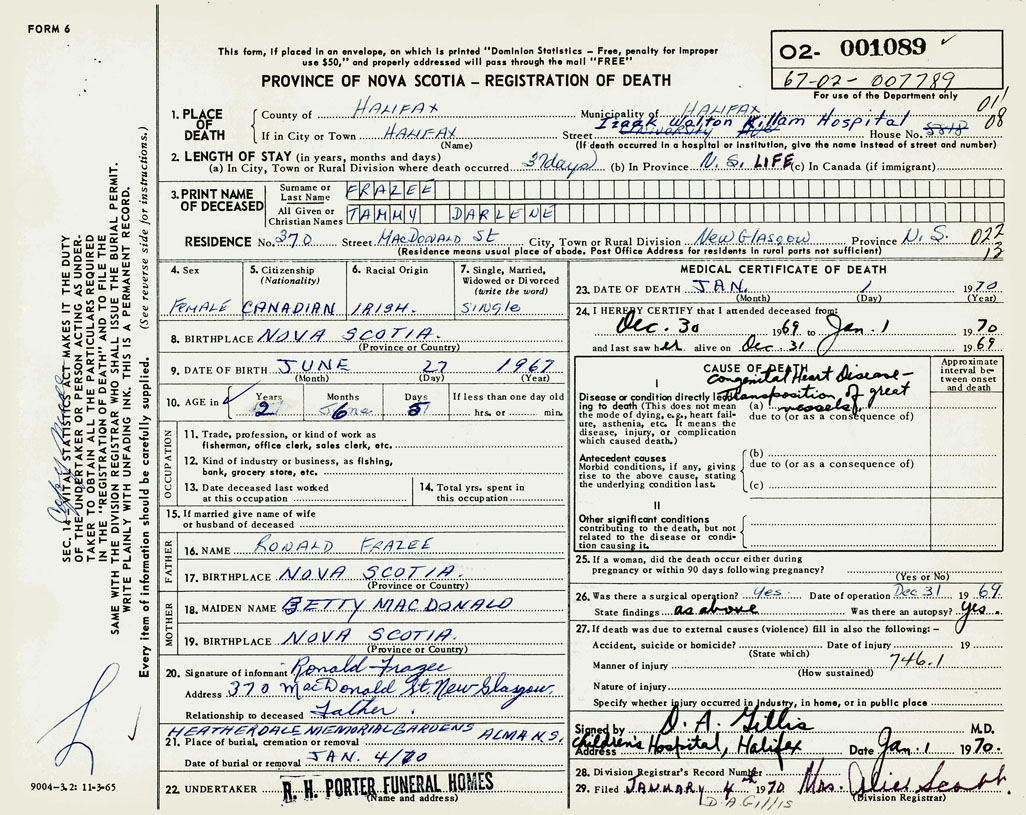 FORM 6
This form, if placed in an envelope, on which is printed "Dominion Statistics - Free, penalty for improper
use $50," and properly addressed will pass through the mail "FREE"
PROVINCE OF NOVA SCOTIA – REGISTRATION OF DEATH
02- 001089
67-02- 007789
For use of the Department only
011
08
1. PLACE OF DEATH
County of HALIFAX Municipality of HALIFAX
Izaak Walton Killam Hospital
If in City or Town HALIFAX Street University House No. 5818
(Name) (If death occurred in a hospital or institution, give the name instead of street and number)
2. LENGTH OF STAY (in years, months and days)
(a) In City, Town or Rural Division where death occurred 3 days (b) In Province N.S. LIFE (c) In Canada (if immigrant)
3. PRINT NAME OF DECEASED
Surname or Last Name FRAZEE
All Given or Christian Names TAMMY DARLENE
RESIDENCE No. 370 Street MACDONALD ST City, Town or Rural Division NEW GLASGOW Province N.S. 022
13
(Residence means usual place of abode. Post Office Address for residents in rural parts not sufficient)
4. Sex FEMALE
5. Citizenship (Nationality) CANADIAN
6. Racial Origin IRISH.
7. Single, Married, Widowed or Divorced (write the word) SINGLE
8. BIRTHPLACE NOVA SCOTIA.
(Province or Country)
9. DATE OF BIRTH JUNE 27 1967
(Month) (Day) (Year)
10. AGE in Years 2 Months 6 Days 5 If less than one day old hrs. or min.
OCCUPATION
11. Trade, profession, or kind of work as
fisherman, office clerk, sales clerk, etc.
12. Kind of industry or business, as fishing,
bank, grocery store, etc.
13. Date deceased last worked
at this occupation
14. Total yrs. spent in
this occupation
15. If married give name of wife
or husband of deceased
FATHER
16. NAME RONALD FRAZEE
17. BIRTHPLACE NOVA SCOTIA
(Province or Country)
MOTHER
18. MAIDEN NAME BETTY MACDONALD
19. BIRTHPLACE NOVA SCOTIA.
(Province or Country)
20. Signature of informant Ronald Frazee
Address 370 MacDonald St. New Glasgow.
Relationship to deceased Father.
HEATHERDALE MEMORIAL GARDENS ALMA N.S.
21. Place of burial, cremation or removal
Date of burial or removal JAN. 4/70
22. UNDERTAKER R. H. PORTER FUNERAL HOMES
(Name and address)
MEDICAL CERTIFICATE OF DEATH
23. DATE OF DEATH JAN. 1 1970
(Month) (Day) (Year)
24. I HEREBY CERTIFY that I attended deceased from:
Dec. 30 1969 to Jan. 1 1970
and last saw her alive on Dec. 31 1969
CAUSE OF DEATH
Approximate interval between onset and death
I
Congenital Heart Disease -
Transposition of great
vessels.
Disease or condition directly leading to death (This does not mean
the mode of dying, e.g., heart failure, asthenia, etc. It means the
disease, injury, or complication
which caused death.)
(a)
due to (or as a consequence of)
Antecedent causes
Morbid conditions, if any, giving
rise to the above cause, stating
the underlying condition last.
(b)
due to (or as a consequence of)
(c)
II
Other significant conditions
contributing to the death, but not
related to the disease or condition causing it.
25. If a woman, did the death occur either during
pregnancy or within 90 days following pregnancy?
(Yes or No)
26. Was there a surgical operation? Yes. Date of operation Dec 31 1969.
State findings as above Was there an autopsy? yes.
27. If death was due to external causes (violence) fill in also the following: -
Accident, suicide or homicide? Date of injury 19
(State which)
Manner of injury 746.1
(How sustained)
Nature of injury
Specify whether injury occurred in industry, in home, or in public place
Signed by D. A. Gillis M.D.
Address Children's Hospital, Halifax Date Jan. 1 1970.
28. Division Registrar's Record Number
29. Filed JANUARY 4th 1970 Mrs. Alice Scott.
D.A. Gillis (Division Registrar)
SEC. 14 - VITAL STATISTICS ACT MAKES IT THE DUTY
OF THE UNDERTAKER OR PERSON ACTING AS UNDERTAKER TO OBTAIN ALL THE PARTICULARS REQUIRED
IN THE "REGISTRATION OF DEATH" AND TO FILE THE
SAME WITH THE DIVISION REGISTRAR WHO SHALL ISSUE THE BURIAL PERMIT.
WRITE PLAINLY WITH UNFADING INK. THIS IS A PERMANENT RECORD.
Every item of information should be carefully supplied. (See reverse side for instructions.)
9004-3.2: 11-3-65